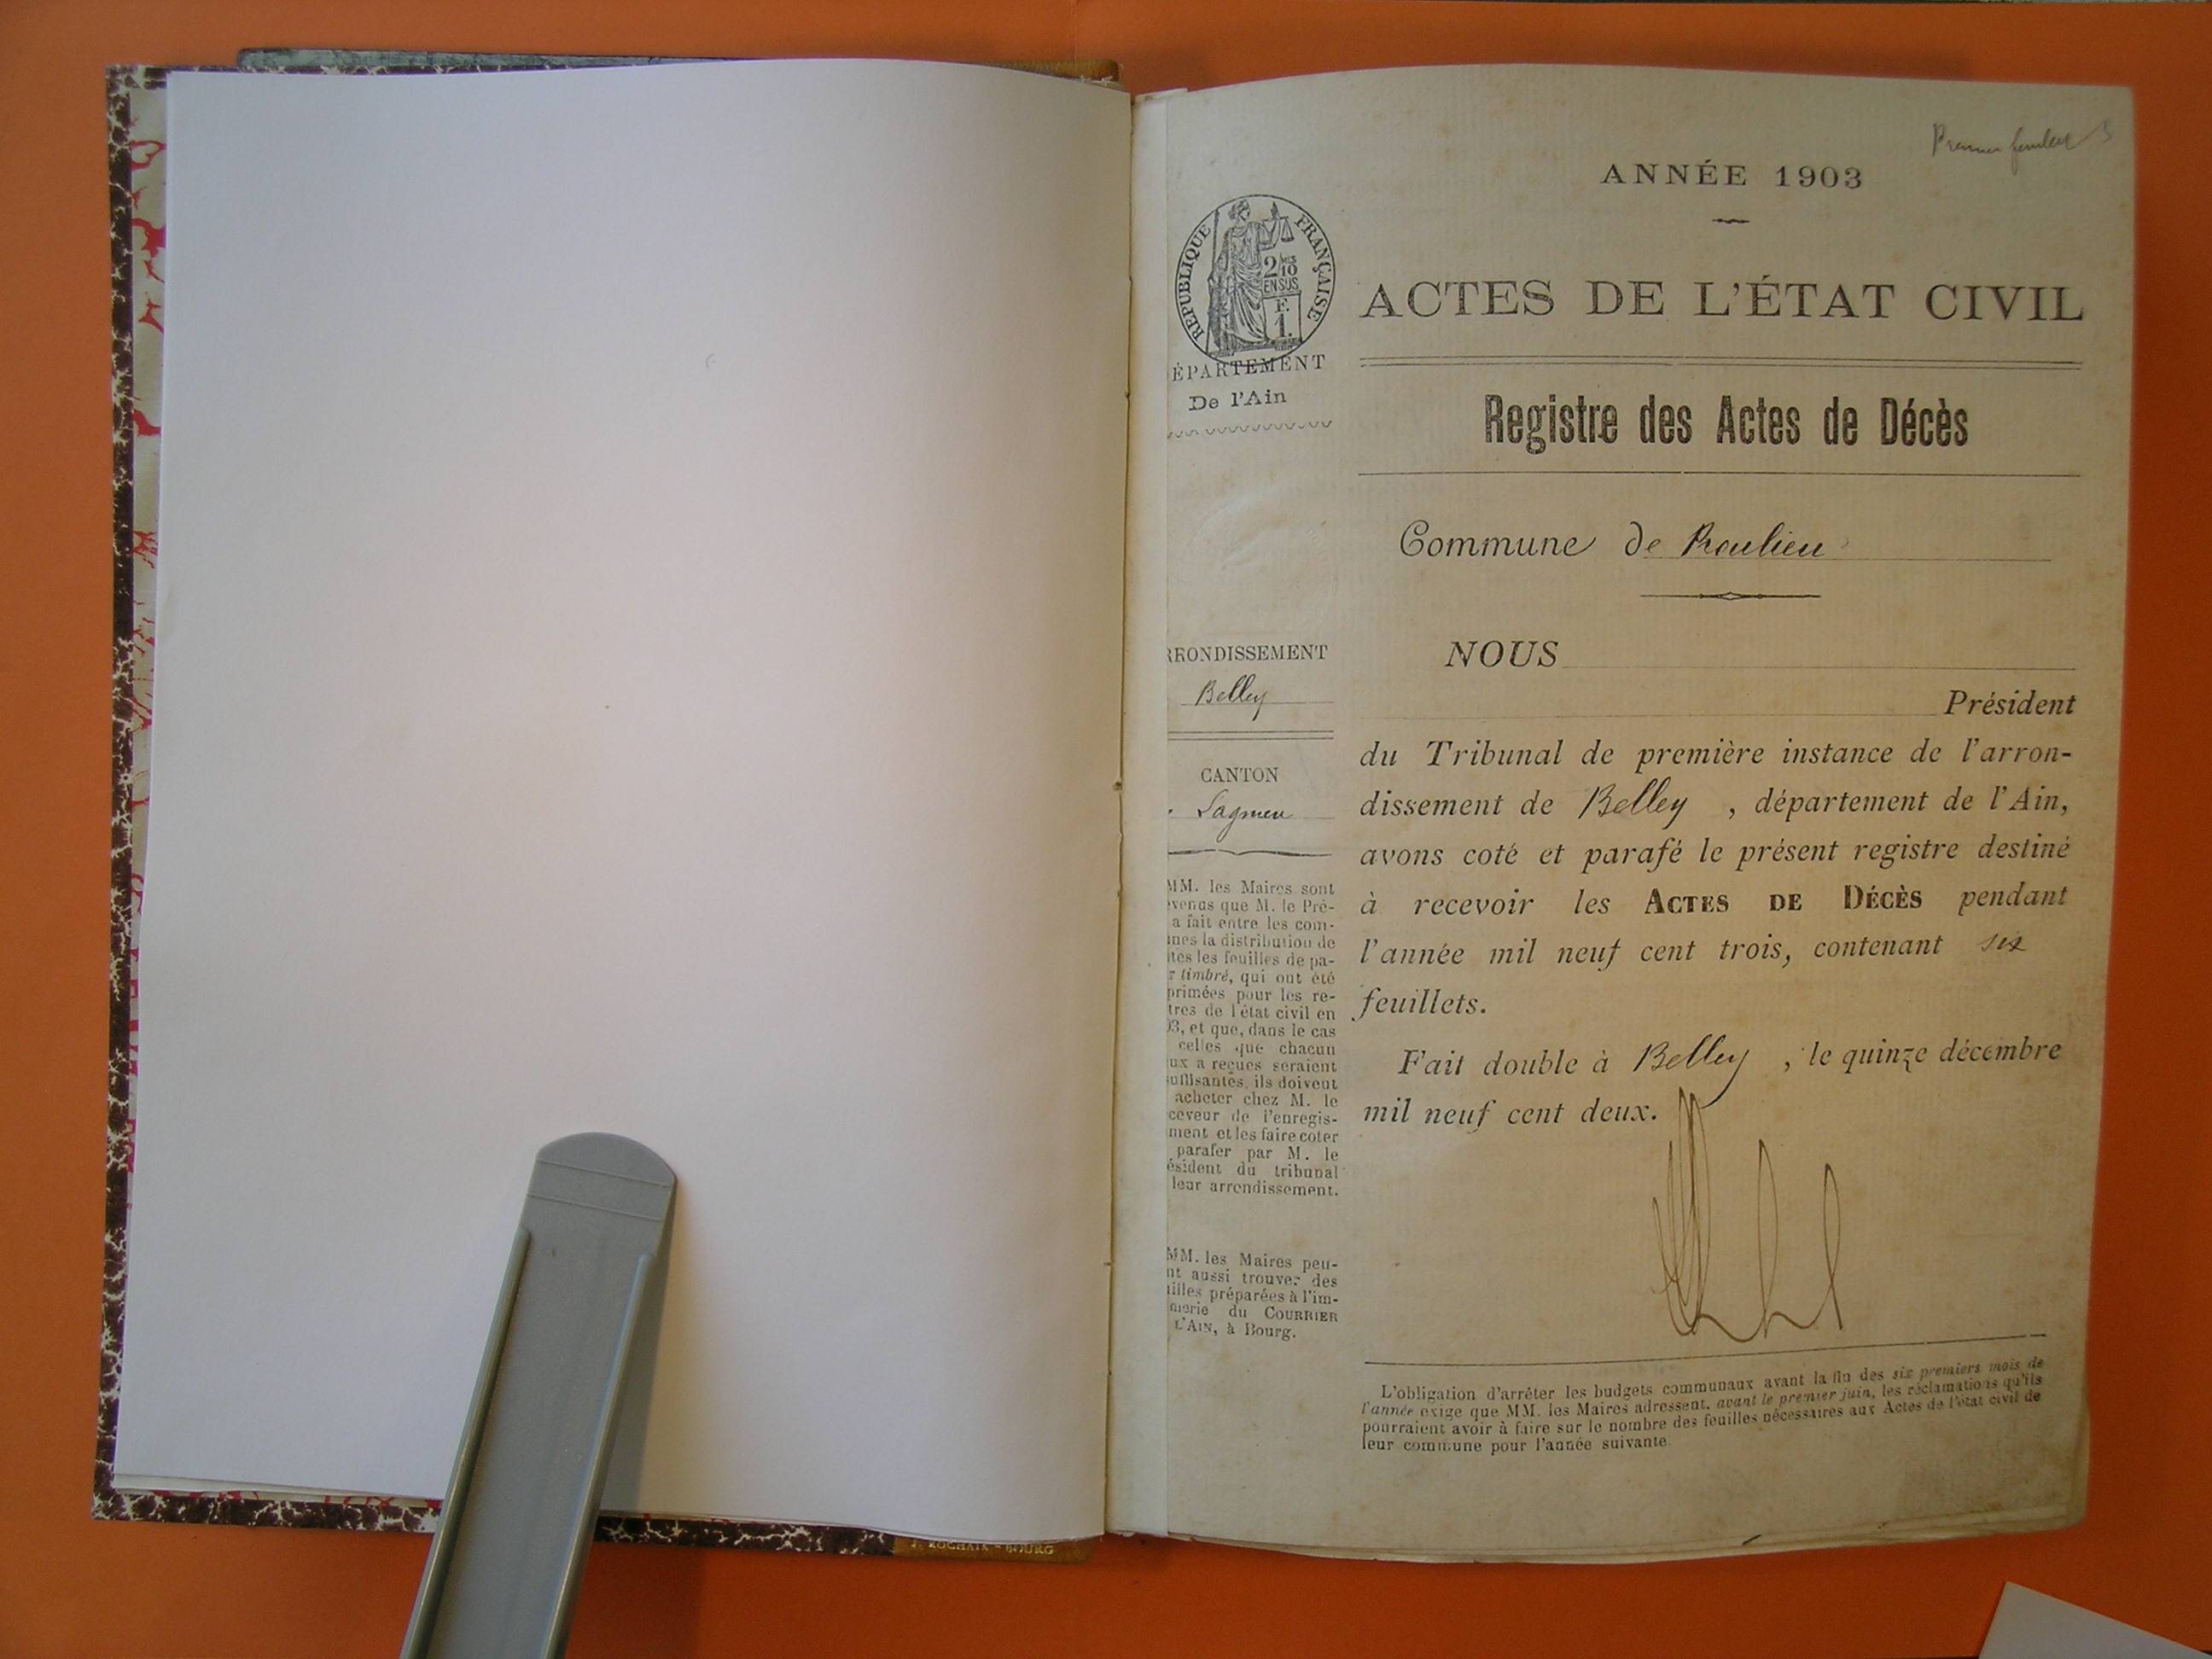 Premier feuillet
ANNÉE 1903
RÉPUBLIQUE FRANÇAISE
2/10
EN SUS
F.
1.
ÉPARTEMENT
De l'Ain
ACTES DE L'ÉTAT CIVIL
Registre des Actes de Décès
Commune de
NOUS
Président
du Tribunal de première instance de l'arron-
dissement de Belley , département de l'Ain,
avons coté et parafé le présent registre destiné
à recevoir les ACTES DE DÉCÈS pendant
l'année mil neuf cent trois, contenant six
feuillets.
Fait double à Belley , le quinze décembre
mil neuf cent deux.
RRONDISSEMENT
Belley
CANTON
Lagnieu
MM. les Maires sont
venus que M. le Pré-
a fait entre les com-
nes la distribution de
tes les feuilles de pa-
r timbré, qui ont été
primées pour les re-
tres de l'état civil en
03, et que, dans le cas
celles que chacun
ux a reçues seraient
suffisantes, ils doivent
acheter chez M. le
ceveur de l'enregis-
ment et les faire coter
parafer par M. le
ésident du tribunal
leur arrondissement.
MM. les Maires peu-
nt aussi trouver des
illes préparées à l'im-
merie du COURRIER
L'AIN, à Bourg.
L'obligation d'arrêter les budgets communaux avant la fin des six premiers mois de
l'année exige que MM. les Maires adressent, avant le premier juin, les réclamations qu'ils
pourraient avoir à faire sur le nombre des feuilles nécessaires aux Actes de l'état civil de
leur commune pour l'année suivante
ROCHAIX - BOURG